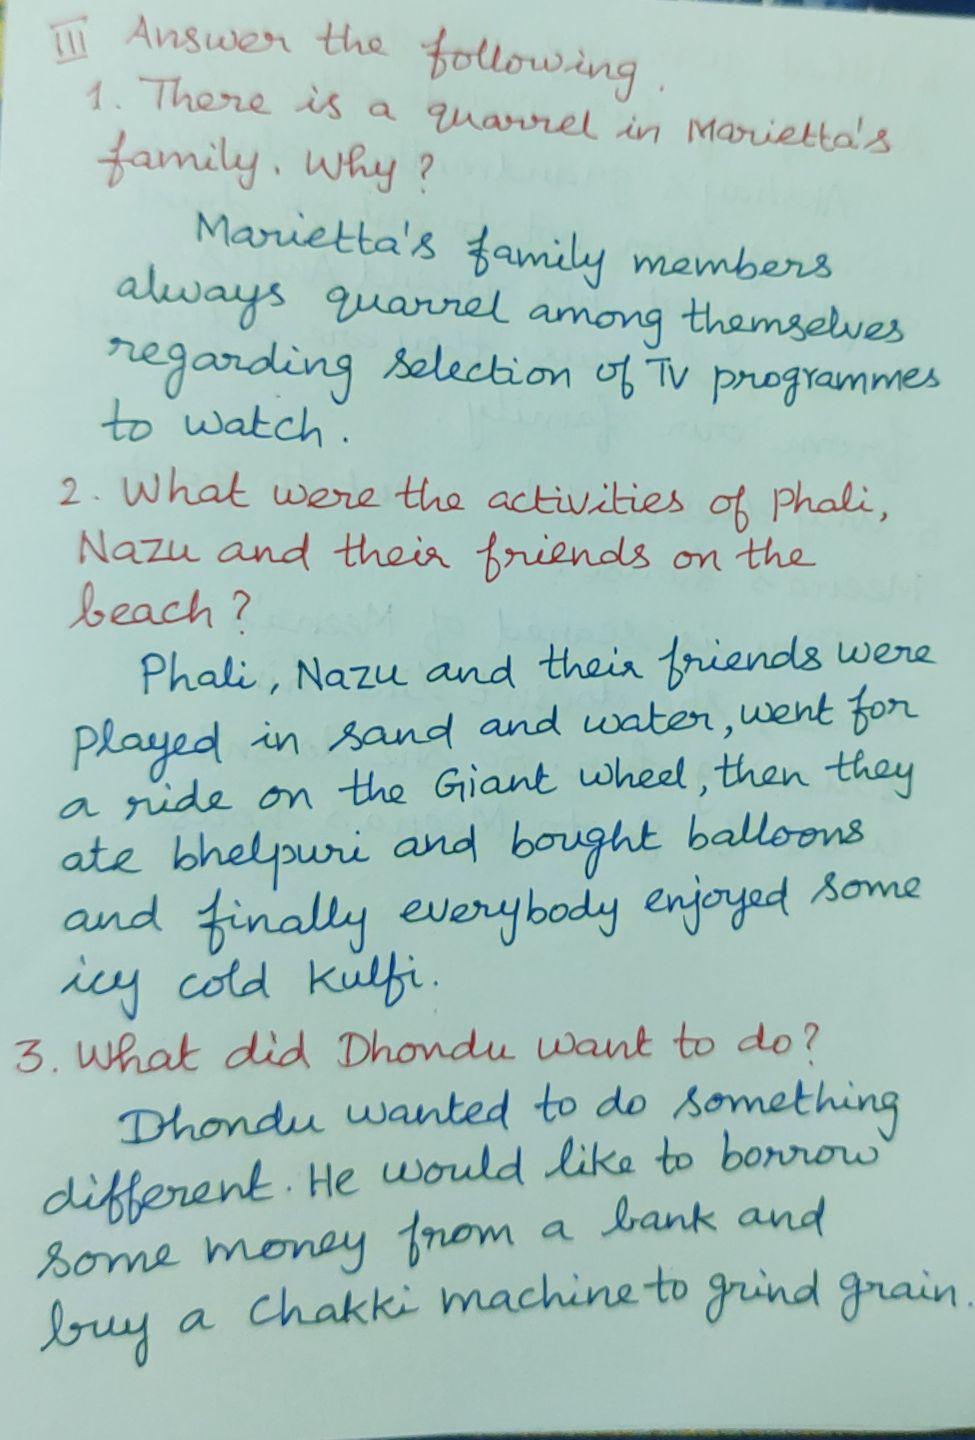 III Answer the following.
1. There is a quarrel in Marietta's
family. Why?
Marietta's family members
always quarrel among themselves
regarding selection of TV programmes
to watch.
2. What were the activities of Phali,
Nazu and their friends on the
beach?
Phali, Nazu and their friends were
played in sand and water, went for
a ride on the Giant wheel, then they
ate bhelpuri and bought balloons
and finally everybody enjoyed some
icy cold kulfi.
3. What did Dhondu want to do?
Dhondu wanted to do something
different. He would like to borrow
some money from a bank and
buy a chakki machine to grind grain.